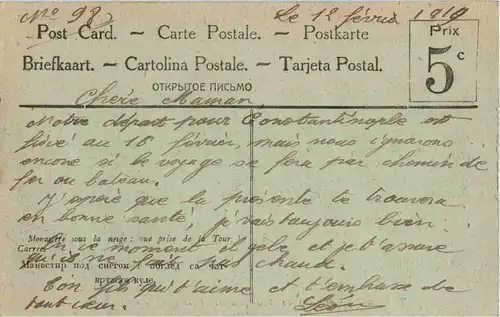 No 98 Le 12 février 1919
Post Card. — Carte Postale. — Postkarte
Briefkaart. — Cartolina Postale. — Tarjeta Postal.
ОТКРЫТОЕ ПИСЬМО
Prix
5 c
Chère Maman,
Notre départ pour Constantinople est
fixé au 16 février, mais nous ignorons
encore si le voyage se fera par chemin de
fer ou bateau.
J'espère que la présente te trouvera
en bonne santé, je vais toujours bien.
Monastir sous la neige: vue prise de la Tour
Carrée
En ce moment il gèle et je t'assure
qu'il ne fait pas chaud.
Манастир под снегом: поглед са
куле.
Ton fils qui t'aime et t'embrasse de
tout cœur.
Léon